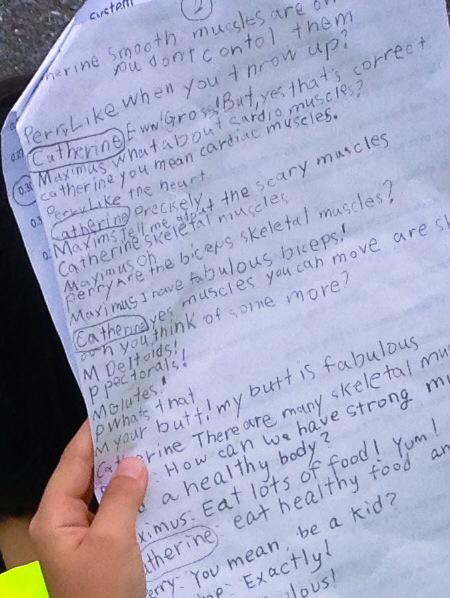 system
2
herine smooth muscles are
you dont contol them
Perry Like when you throw up?
Catherine Eww! Gross! But, yes that's correct
Maximus What about cardio muscles?
Catherine you mean cardiac muscles.
Perry Like the heart
Catherine Precisely
Maxims Tell me about the scary muscles
Catherine skeletal muscles
Maximus Oh
Perry Are the biceps skeletal muscles?
Maximus I have fabulous biceps!
Catherine yes, muscles you can move are
can you think of some more?
M Deltoids!
P pectorals!
M Glutes!
P Whats that
M your butt! my butt is fabulous
Ca erine There are many skeletal mu
: How can we have strong
a healthy body?
ximus: Eat lots of food! Yum!
atherine: eat healthy food an
erry: You mean, be a kid?
ne: Exactly!
lous!